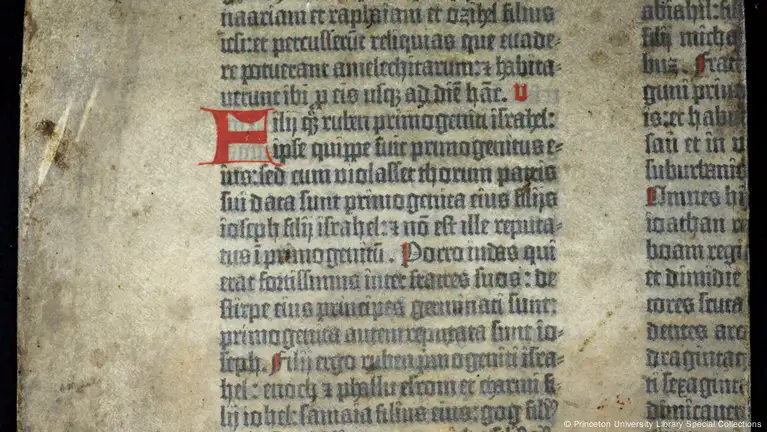 naariam et raphaiam et ozihel filius
iesi: et percusserūt reliquias que euade-
re potuerant amelechitarum: ⁊ habita-
uerunt ibi ꝓ eis usqꝫ ad diē hāc. V
Filij qꝫ ruben primogeniti israhel:
ipse quippe fuit primogenitus e-
ius: sed cum violasset thorum patris
sui data sunt primogenita eius filijs
ioseph filij israhel: ⁊ nō est ille reputa-
tus ī primogenitū. Porro iudas qui
erat fortissimus inter fratres suos: de
stirpe eius principes germinati sunt:
primogenita autem reputata sunt io-
seph. Filij ergo ruben primogeniti isra-
hel: enoch ⁊ phallu esrom et charmi. fi-
lij iohel: samaia filius eius: gog filiꝰ
abiahil: fil
filij micha
buz. Frat
gum prin
is: et habi
san et in
suburbanis
Omnes hi
ioathan r
boam regi
et dimidie
tores scuta
dentes arc
draginta
ti sexaginta
dimicauer
© Princeton University Library Special Collections